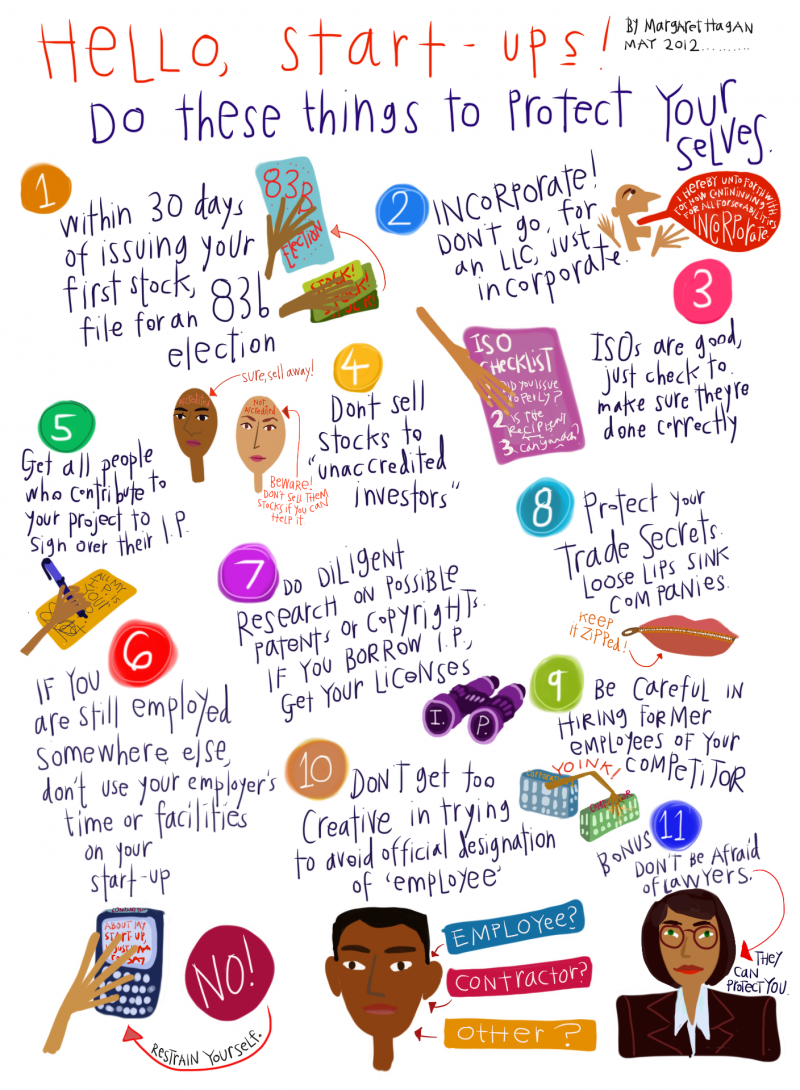 HELLO, START-UPS!
BY MARGARET HAGAN
MAY 2012..........
Do these things to Protect Your
selves.
1
within 30 days
of issuing your
first stock,
file for an 83b
election
83B
ELECTION
STOCK!
STOCK!
2
INCORPORATE!
DON'T go, for
an LLC, just
incorporate.
I HEREBY UNTO FORTHWITH
FOR NOW CONTININUING
FOR ALL FORSEEABILITIES
INCORPORATE
3
ISOs are good,
just check to
make sure they're
done correctly
ISO
CHECKLIST
DID YOU ISSUE
PROPERLY?
2. IS the
RECIPIENT
3.
4
Don't sell
stocks to
"unaccredited
investors"
sure, sell away!
Accredited
Not
Accredited
BEWARE!
DON'T SELL THEM
STOCKS IF YOU CAN
HELP IT
5
Get all people
who contribute to
your project to
sign over their I.P.
ALL MY
I.P. IS
YOUR
6
IF YOU
are still employed
somewhere else,
don't use your employer's
time or facilities
on your
start-up
ABOUT MY
START-UP,
NO!
RESTRAIN YOURSELF.
7
DO DILIGENT
RESEARCH ON POSSIBLE
PATENTS or COPYRIGHTS.
IF YOU BORROW I.P.,
GET YOUR LICENSES
I. P.
8
Protect your
Trade Secrets.
LOOSE LIPS SINK
COMPANIES.
KEEP
it ZIPPED!
9
Be Careful IN
HIRING FORMER
EMPLOYEES OF YOUR
COMPETITOR
YOINK!
COMPETITOR
10
DON'T get too
Creative in trying
to avoid official designation
of 'employee'
EMPLOYEE?
CONTRACTOR?
OTHER?
BONUS 11
DON'T BE Afraid
of LAWYERS.
THEY
CAN
PROTECT YOU.